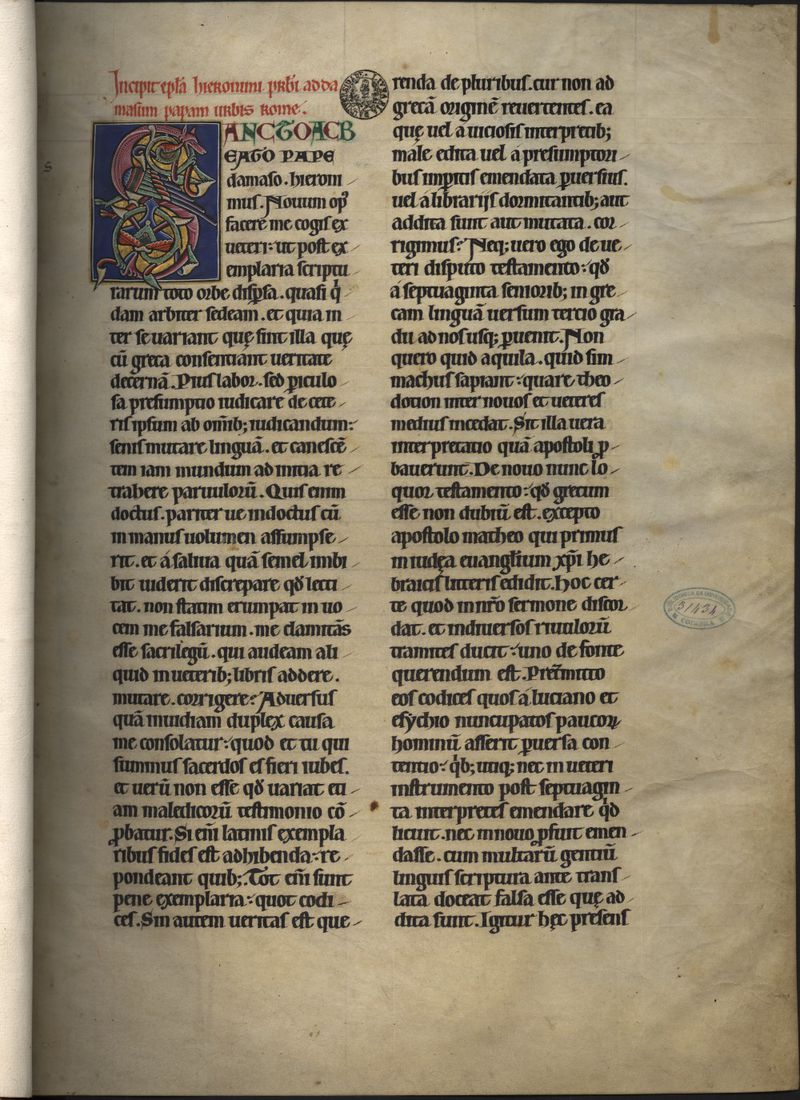 Incipit ep̄la hieronimi p̄rbi̅ ad da
masum papam urbis rome.
SANCTO AC B
EATO PAPE
damaso. hieroni
mus. Nouum op̄
facere me cogis ex
ueteri: ut post ex
emplaria scriptu
rarum toto orbe disp̱sa. quasi q̇
dam arbiter sedeam. et quia in
ter se uariant quę sint illa quę
cū greca consentiant ueritate
decernā. Pius labor. sed ꝑiculo
sa presumptio iudicare de cete
ris ipsum ab om̄ib; iudicandum:
senis mutare linguā. et canescē
tem iam mundum ad initia re
trahere paruulorū. Quis enim
doctus. pariter ue indoctus cū
in manus uolumen assumpse
rit. et a saliua quā semel imbi
bit uiderit discrepare qd̄ lecti
tat. non statim erumpat in uo
cem me falsarium. me clamitās
esse sacrilegū. qui audeam ali
quid in ueterib; libris addere.
mutare. corrigere? Aduersus
quā inuidiam duplex causa
me consolatur: quod et tu qui
summus sacerdos es fieri iubes.
et uerū non esse qd̄ uariat eti
am maledicorū testimonio cō
ꝓbatur. Si eni̅ latinis exempla
ribus fides est adhibenda: re
pondeant quib;. Tot eni̅ sunt
pene exemplaria: quot codi
ces. Sin autem ueritas est que
renda de pluribus. cur non ad
grecā originē reuertentes. ea
quę uel a uiciosis interp̄tib;
male edita uel a presumptori
bus imp̄itis emendata ꝑuersius.
uel a librarijs dormitantib; aut
addita sunt aut mutata. cor
rigimus? Neq; uero ego de ue
teri disputo testamento: qd̄
a septuaginta seniorib; in gre
cam linguā uersum tercio gra
du ad nos usq; ꝑuenit. Non
quero quid aquila. quid sim
machus sapiant: quare theo
dotion inter nouos et ueteres
medius incedat. Sit illa uera
interpretatio quā apostoli ꝓ
bauerunt. De nouo nunc lo
quor testamento: qd̄ grecum
esse non dubiū est. excepto
apostolo matheo qui primus
in iudęa euanglium xp̄i he
braicis litteris edidit. Hoc cer
te quod in nr̄o sermone discor
dat. et in diuersos riuulorū
tramites ducit: uno de fonte
querendum est. Pret̄mitto
eos codices quos a luciano et
esychio nuncupatos paucoꝝ
hominū asserit ꝑuersa con
tentio: qb̄; utiq; nec in ueteri
instrumento post septuagin
ta interpretes emendare qd̄
licuit. nec in nouo ꝓfuit emen
dasse. cum multarū gentiū
linguis scriptura ante trans
lata doceat falsa esse quę ad
dita sunt. Igitur hęc presens
31434
COIMBRA